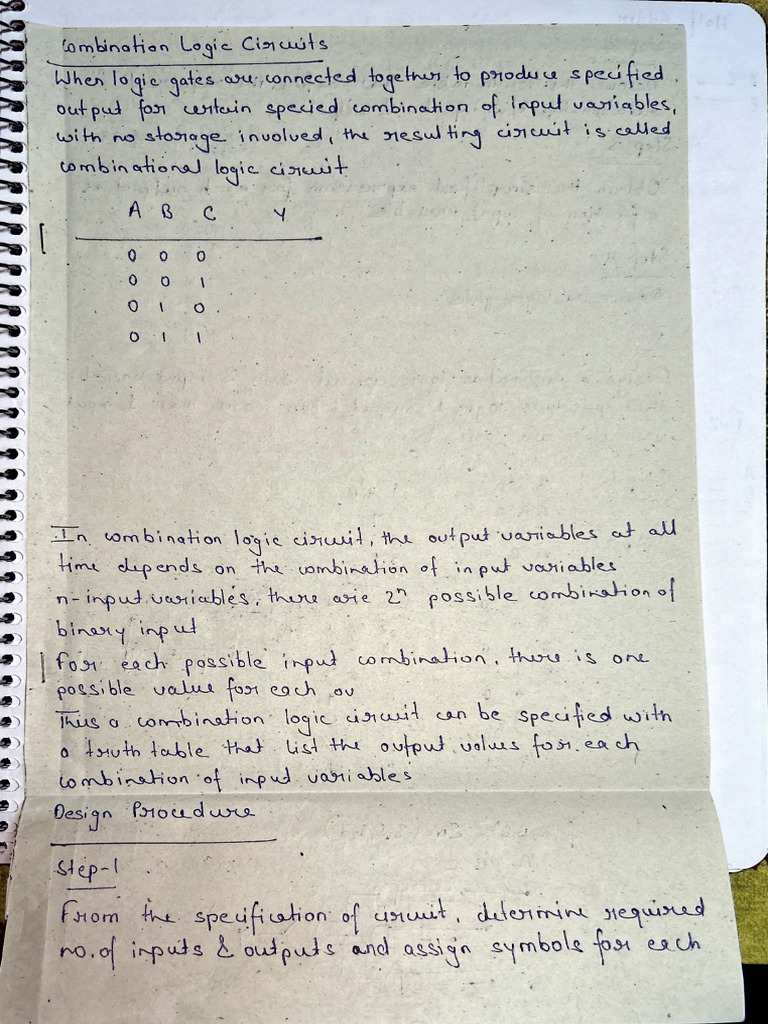 Combination Logic Circuits
When logic gates are connected together to produce specified
output for certain specied combination of Input variables,
with no storage involved, the resulting circuit is called
combinational logic circuit
A B C Y
0 0 0
0 0 1
0 1 0
0 1 1
In combination logic circuit, the output variables at all
time depends on the combination of input variables
n-input variables, there are 2ⁿ possible combination of
binary input
For each possible input combination, there is one
possible value for each ov
Thus a combination logic circuit can be specified with
a truth table that list the output values for each
combination of input variables
Design Procedure
Step-1
From the specification of circuit, determine required
no. of inputs & outputs and assign symbols for each